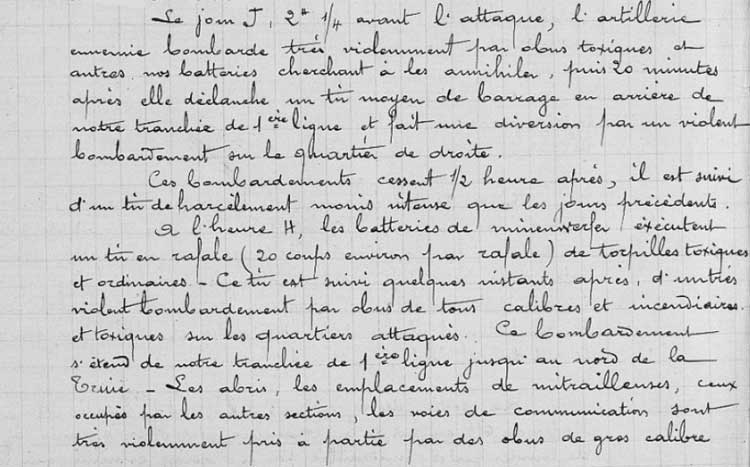 Le jour J, 2h 1/4 avant l'attaque, l'artillerie
ennemie bombarde très violemment par obus toxiques et
autres nos batteries cherchant à les annihiler, puis 20 minutes
après elle déclanche un tir moyen de barrage en arrière de
notre tranchée de 1ère ligne et fait une diversion par un violent
bombardement sur le quartier de droite.
Ces bombardements cessent 1/2 heure après, il est suivi
d'un tir de harcèlement moins intense que les jours précédents.
A l'heure H, les batteries de minenwerfer exécutent
un tir en rafale (20 coups environ par rafale) de torpilles toxiques
et ordinaires - Ce tir est suivi quelques instants après, d'un très
violent bombardement par obus de tous calibres et incendiaires
et toxiques sur les quartiers attaqués. Ce bombardement
s'étend de notre tranchée de 1ère ligne jusqu'au nord de la
Truie - Les abris, les emplacements de mitrailleuses, ceux
occupés par les autres sections, les voies de communication sont
très violemment pris à partie par des obus de gros calibre